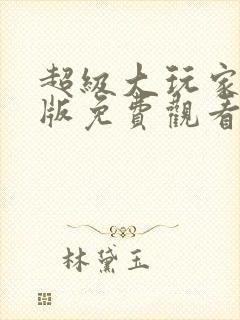 超級大玩家
版免費觀看
林黛玉